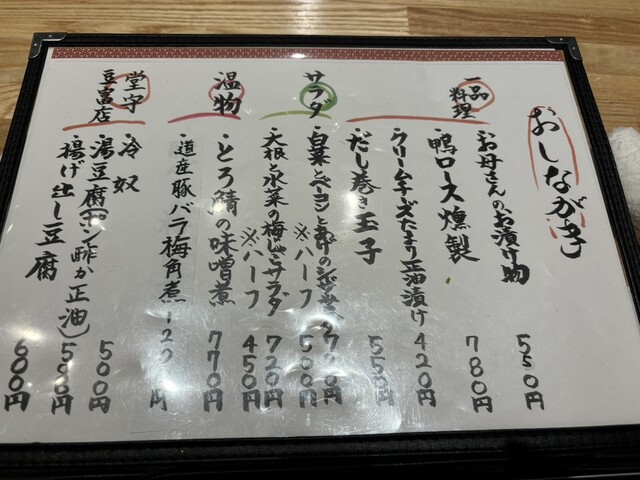 おしながき
一品料理
お母さんのお漬け物 550円
鴨ロース燻製 780円
クリームチーズたまり正油漬け 420円
だし巻き玉子 550円
サラダ
白菜とベーコンと 720円
※ハーフ 500円
大根と水菜の梅じゃこサラダ 720円
※ハーフ 450円
温物
とろ鯖の味噌煮 770円
道産豚バラ梅角煮 円
堂守豆富店
冷奴 500円
湯豆腐(ポン酢か正油) 500円
揚げ出し豆腐 600円